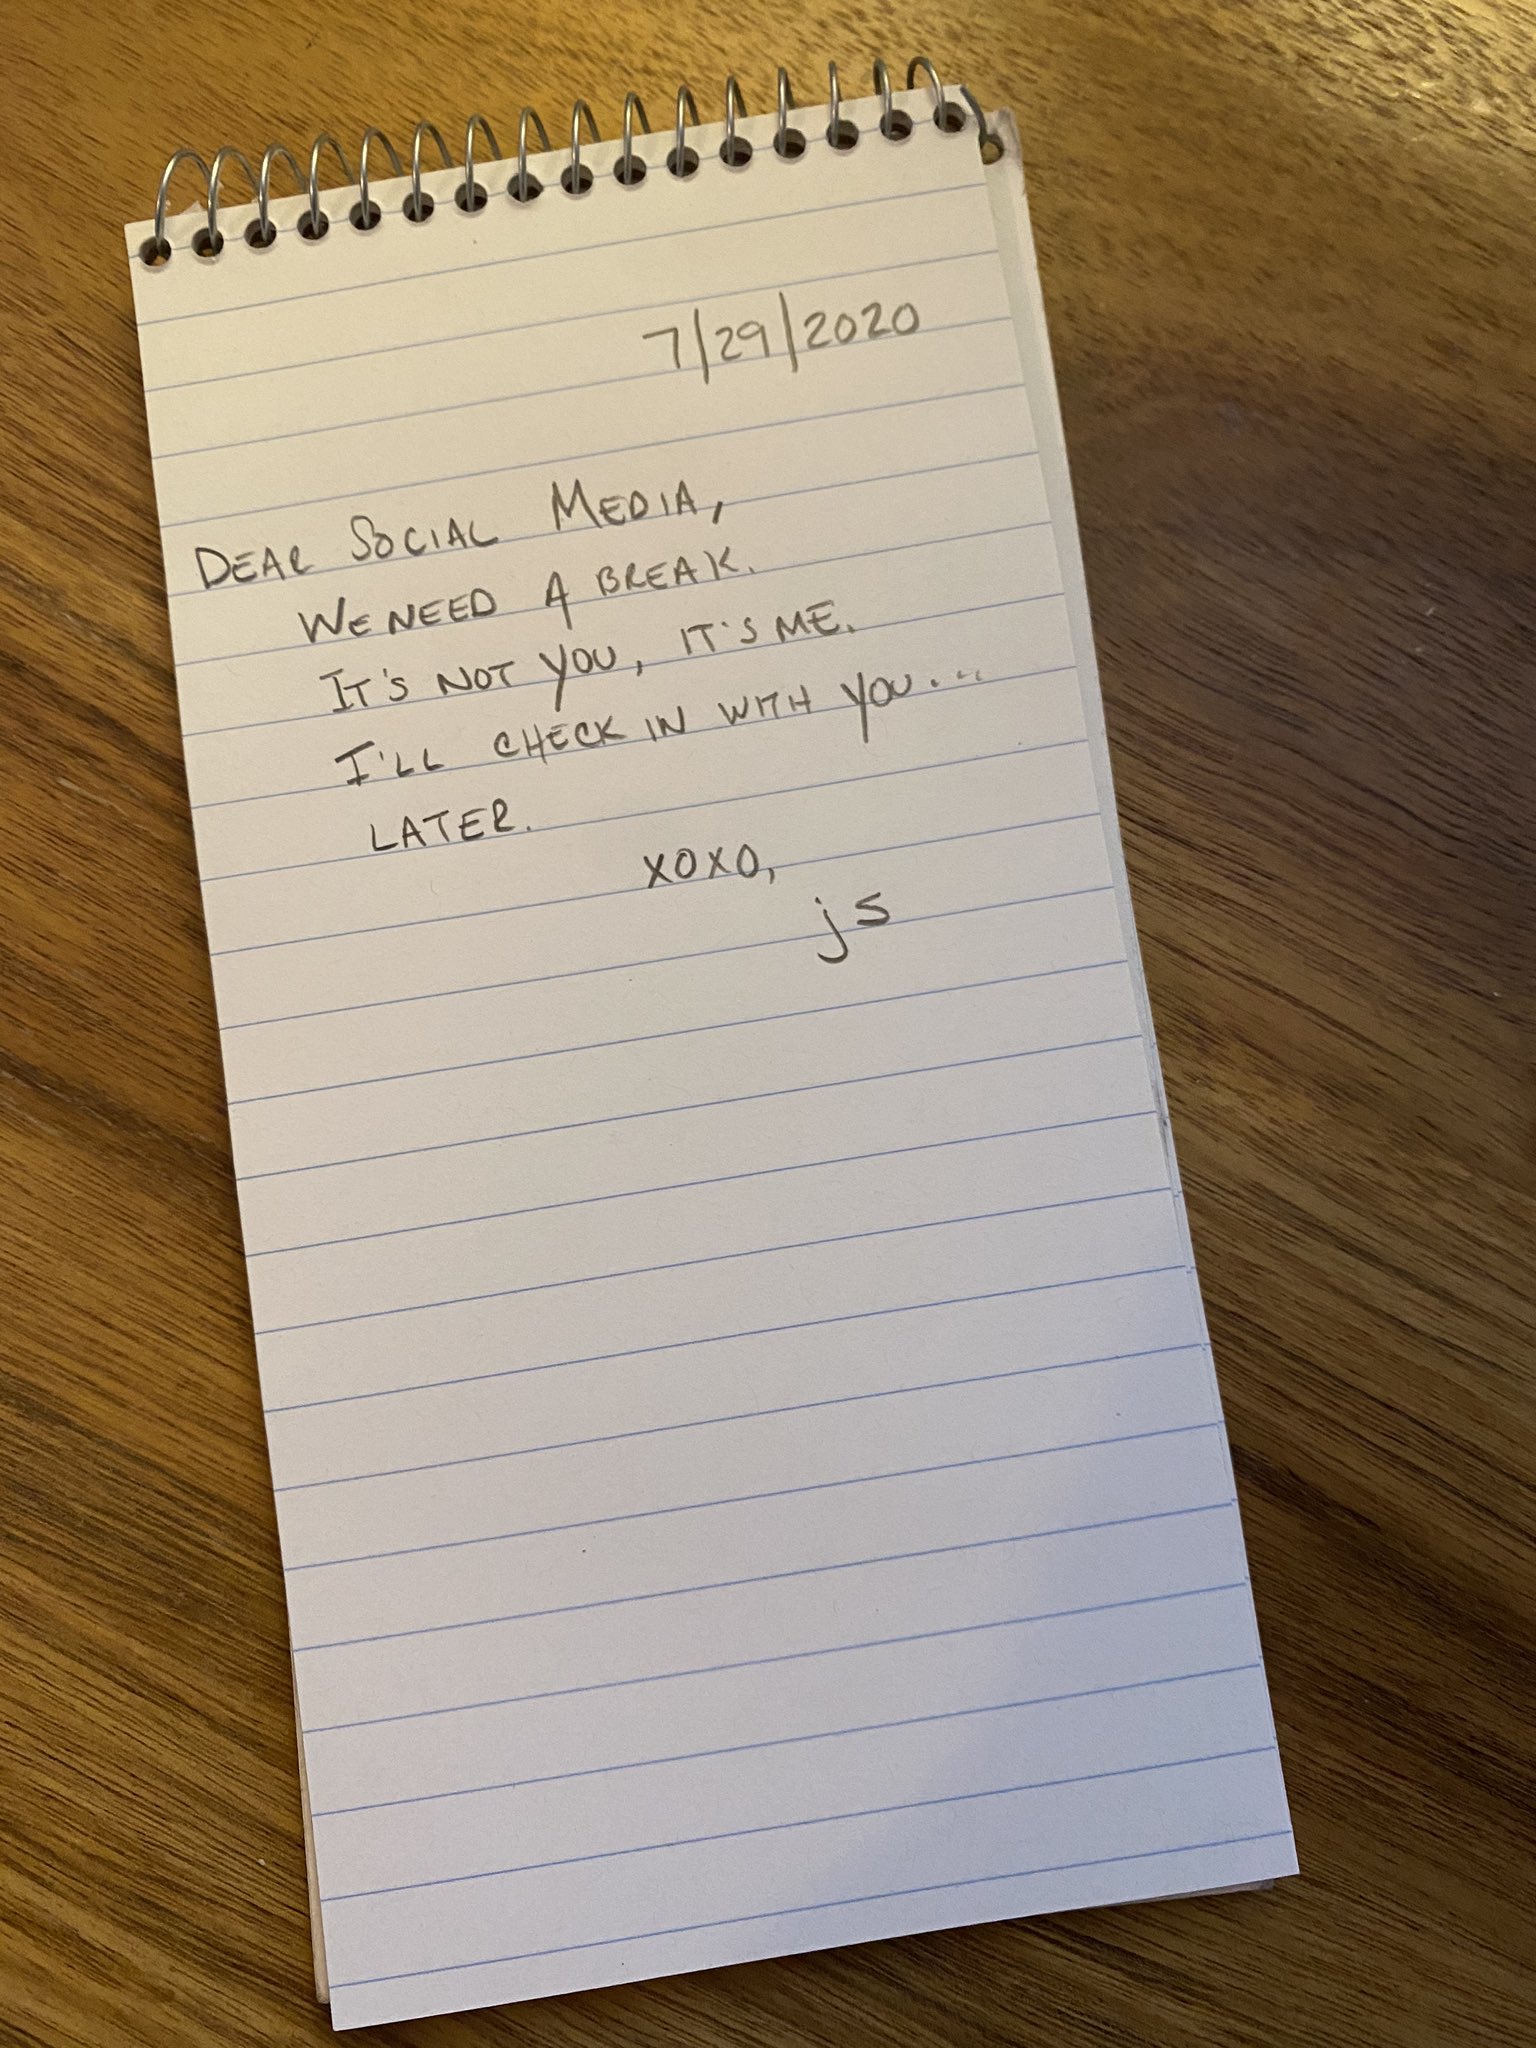 7/29/2020
DEAR SOCIAL MEDIA,
WE NEED A BREAK.
IT'S NOT YOU, IT'S ME.
I'LL CHECK IN WITH YOU...
LATER.
XOXO,
js